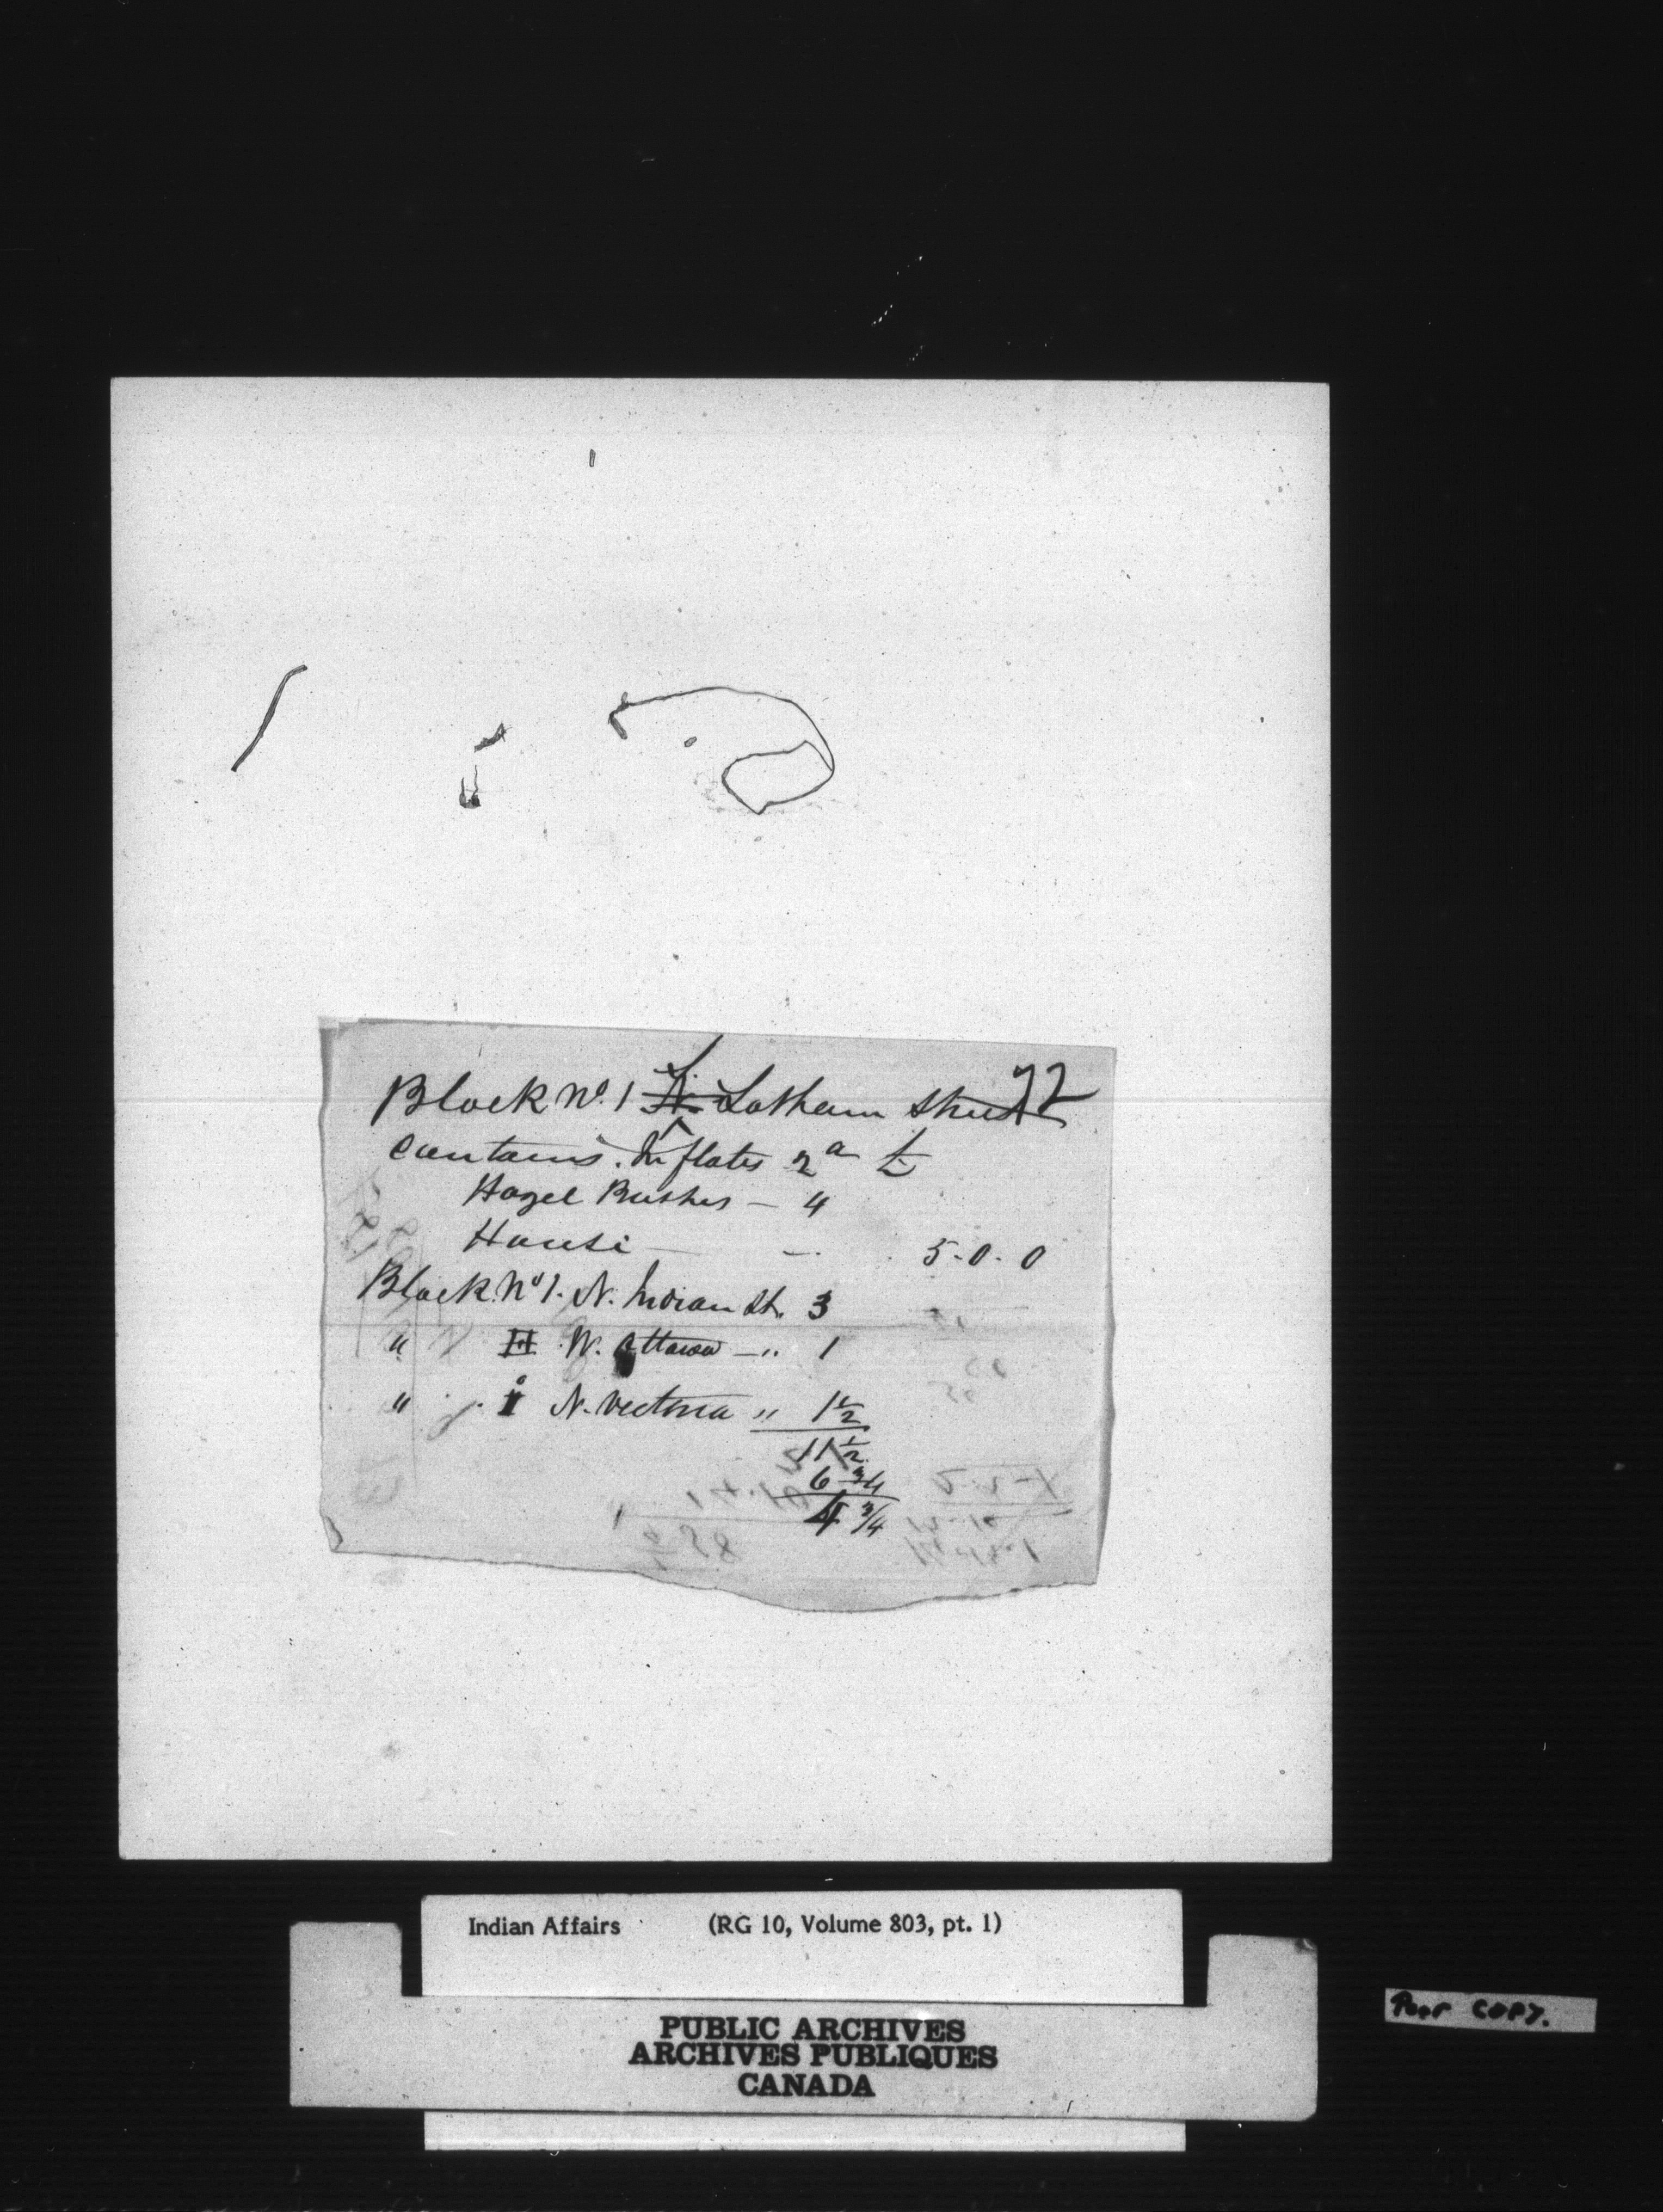 72
Block No. 1 S. Latham Street
contains. In flates 2 a ½
Hazel Bushes - 4
House - - 5-0-0
Block No 1. N. Indian St. 3
" II W. Ottawa - " 1
" 1 N. Victoria " 1½
11½
6 3/4
4 3/4
Indian Affairs (RG 10, Volume 803, pt. 1)
PUBLIC ARCHIVES
ARCHIVES PUBLIQUES
CANADA
Poor COPY.